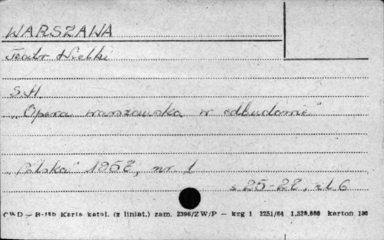 WARSZAWA
Teatr Wielki
S.H.
"Opera warszawska w odbudowie"
"Polska" 1962, nr. 1
s. 25-27, il. 6
CWD — B-19b Karta katal. (z liniat.) zam. 2396/Z W/P — krg 1 1251/64 1,520,000 karton 190